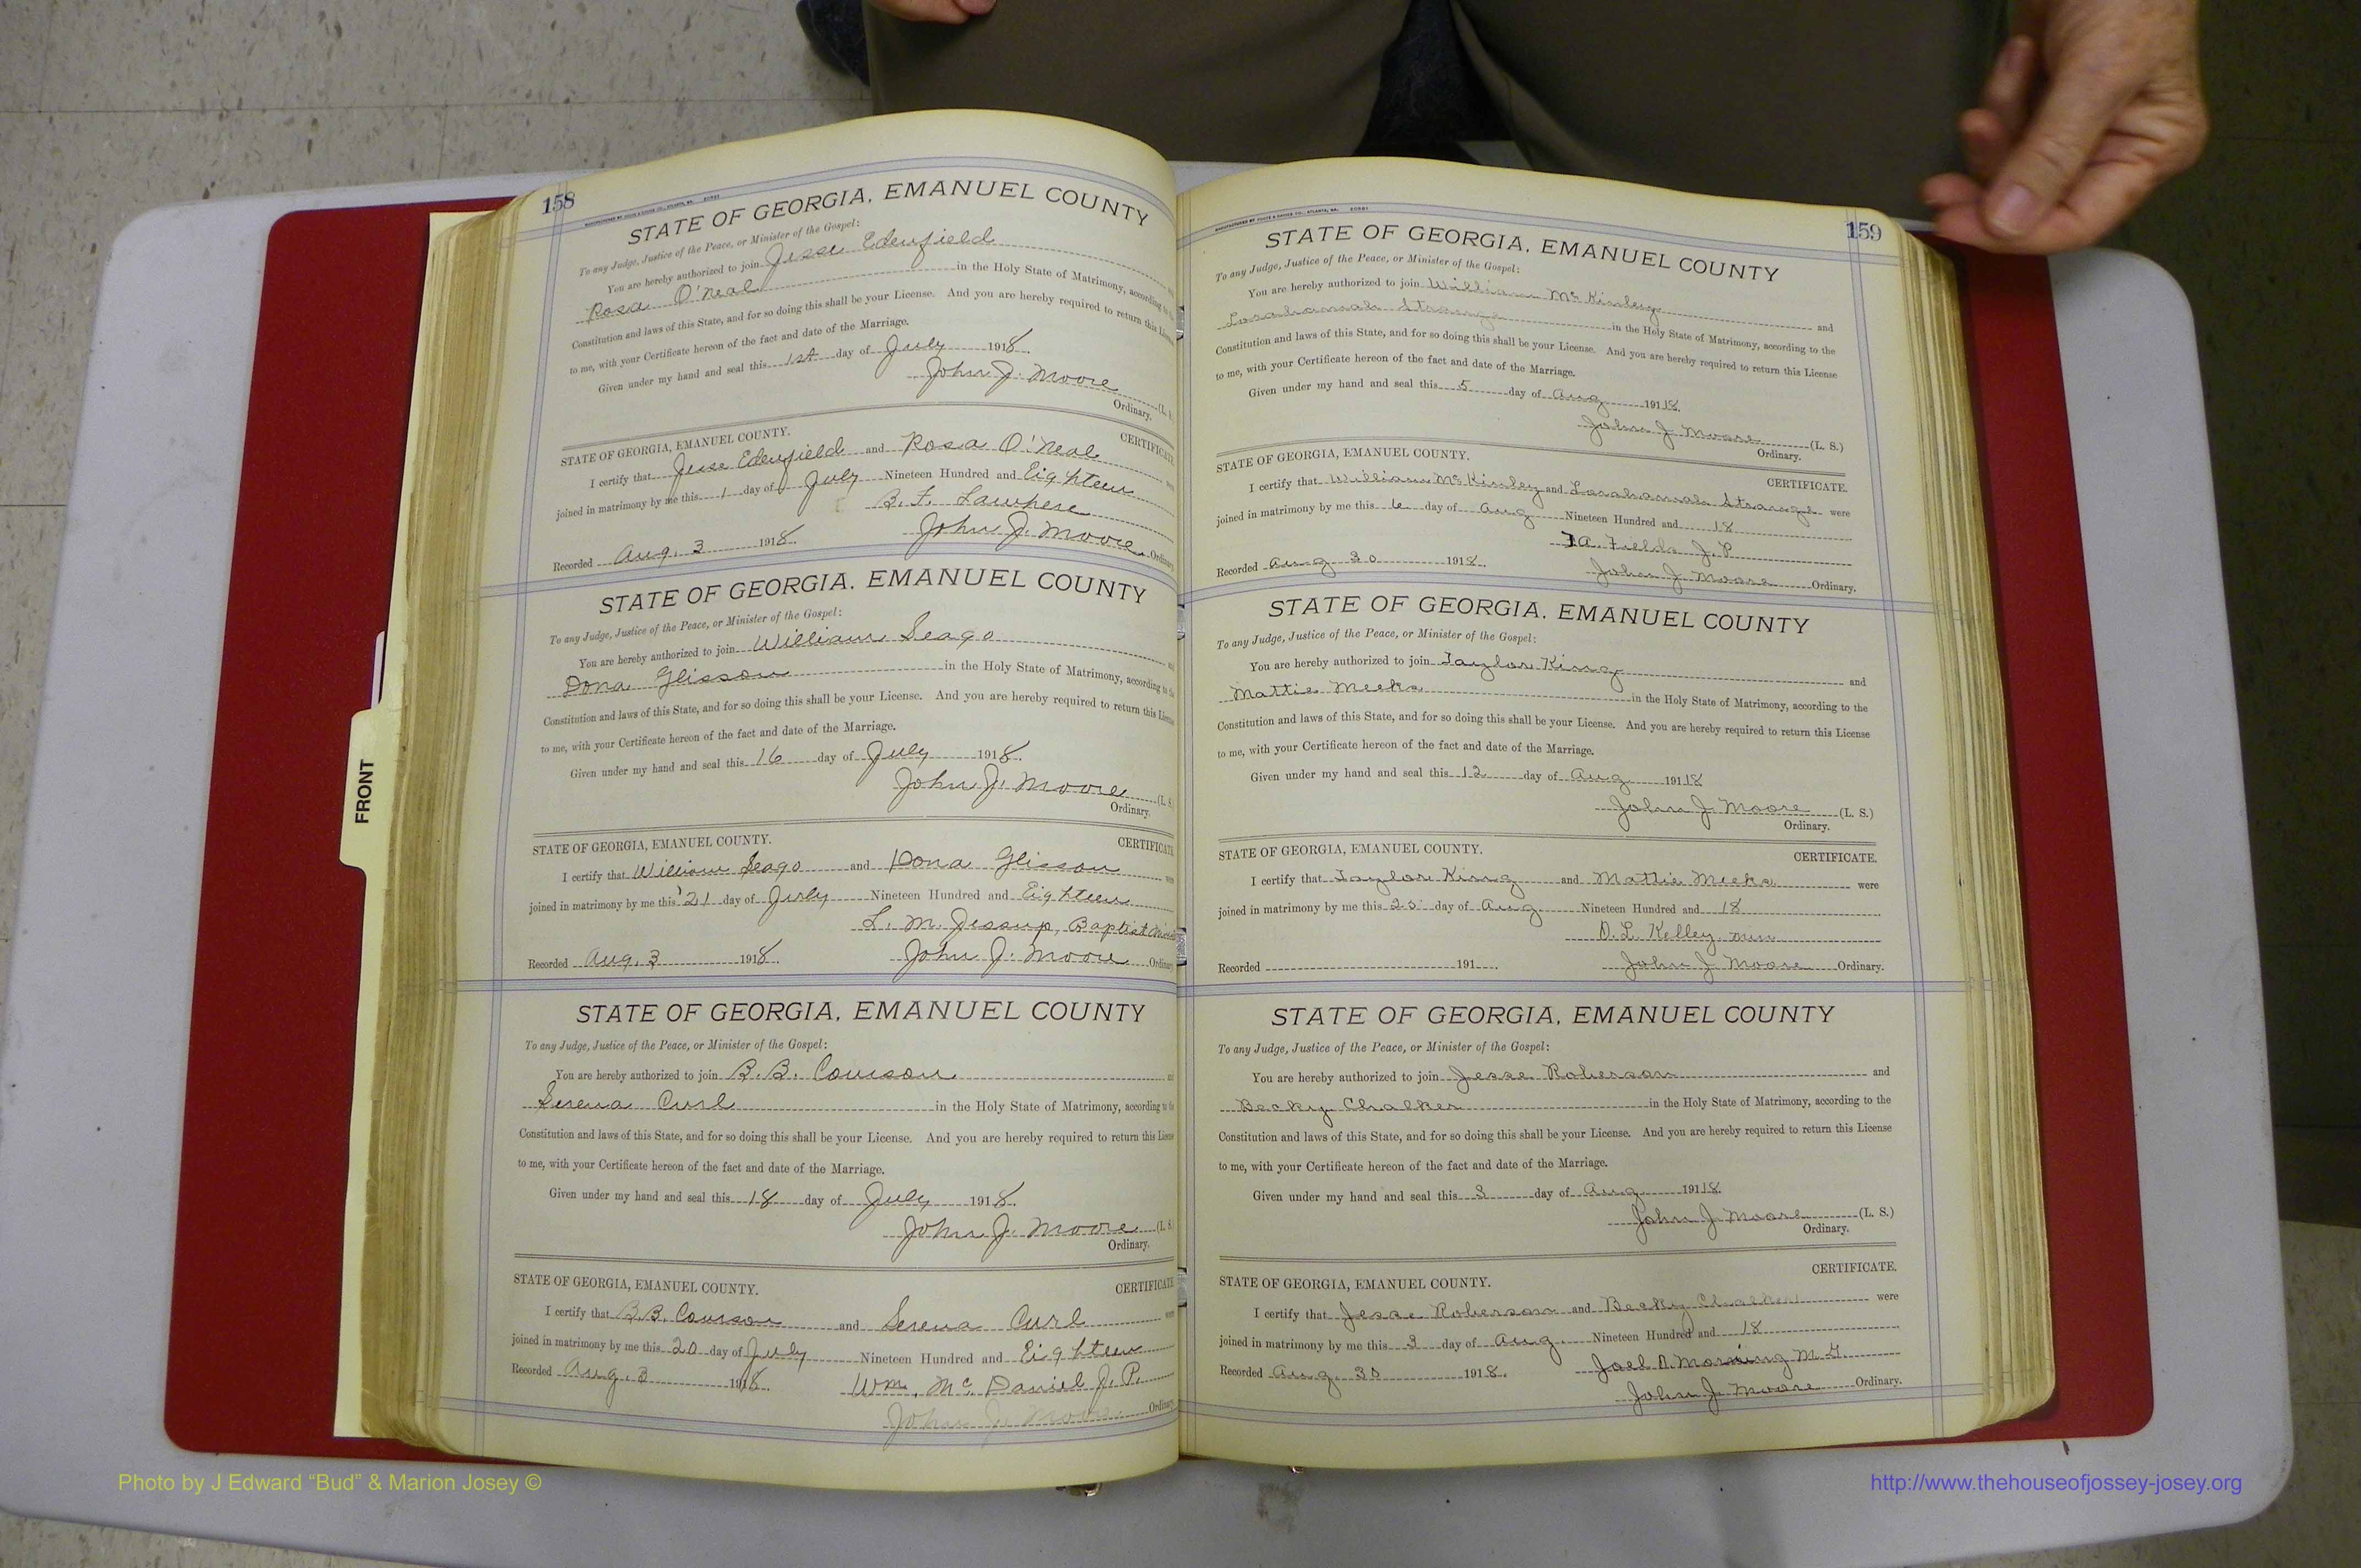 158
STATE OF GEORGIA, EMANUEL COUNTY
To any Judge, Justice of the Peace, or Minister of the Gospel:
You are hereby authorized to join Jesse Edenfield
Rosa O'Neal in the Holy State of Matrimony, according to the
Constitution and laws of this State, and for so doing this shall be your License. And you are hereby required to return this License
to me, with your Certificate hereon of the fact and date of the Marriage.
Given under my hand and seal this 1st day of July 1918.
John J. Moore (L. S.
Ordinary.
STATE OF GEORGIA, EMANUEL COUNTY. CERTIFICATE
I certify that Jesse Edenfield and Rosa O'Neal
joined in matrimony by me this 1 day of July Nineteen Hundred and Eighteen
B. F. Lawhere
Recorded Aug. 3 1918. John J. Moore Ordinary
STATE OF GEORGIA. EMANUEL COUNTY
To any Judge, Justice of the Peace, or Minister of the Gospel:
You are hereby authorized to join William Seago
Dona Glisson in the Holy State of Matrimony, according to the
Constitution and laws of this State, and for so doing this shall be your License. And you are hereby required to return this License
to me, with your Certificate hereon of the fact and date of the Marriage.
Given under my hand and seal this 16 day of July 1918.
John J. Moore (L. S
Ordinary.
STATE OF GEORGIA, EMANUEL COUNTY. CERTIFICATE
I certify that William Seago and Dona Glisson were
joined in matrimony by me this 21 day of July Nineteen Hundred and Eighteen
L. M. Jessup, Baptist
Recorded Aug. 3 1918. John J. Moore Ordinary
STATE OF GEORGIA, EMANUEL COUNTY
To any Judge, Justice of the Peace, or Minister of the Gospel:
You are hereby authorized to join B. B. Courson
Serena Curl in the Holy State of Matrimony, according to the
Constitution and laws of this State, and for so doing this shall be your License. And you are hereby required to return this License
to me, with your Certificate hereon of the fact and date of the Marriage.
Given under my hand and seal this 18 day of July 1918.
John J. Moore (L. S
Ordinary.
STATE OF GEORGIA, EMANUEL COUNTY. CERTIFICATE
I certify that B.B. Courson and Serena Curl were
joined in matrimony by me this 20 day of July Nineteen Hundred and Eighteen
Recorded Aug. 3 1918. Wm. Mc Daniel J. P.
John J. Moore Ordinary
159
STATE OF GEORGIA. EMANUEL COUNTY
To any Judge, Justice of the Peace, or Minister of the Gospel:
You are hereby authorized to join William McKinley and
Losahannah Strange in the Holy State of Matrimony, according to the
Constitution and laws of this State, and for so doing this shall be your License. And you are hereby required to return this License
to me, with your Certificate hereon of the fact and date of the Marriage.
Given under my hand and seal this 5 day of Aug 19118.
John J Moore (L. S.)
Ordinary.
STATE OF GEORGIA, EMANUEL COUNTY. CERTIFICATE.
I certify that William McKinley and Losahannah Strange were
joined in matrimony by me this 6 day of Aug Nineteen Hundred and 18
J A. Fields J. P
Recorded Aug 30 1918. John J Moore Ordinary.
STATE OF GEORGIA. EMANUEL COUNTY
To any Judge, Justice of the Peace, or Minister of the Gospel:
You are hereby authorized to join Taylor King and
Mattie Meeks in the Holy State of Matrimony, according to the
Constitution and laws of this State, and for so doing this shall be your License. And you are hereby required to return this License
to me, with your Certificate hereon of the fact and date of the Marriage.
Given under my hand and seal this 12 day of Aug 19118
John J. Moore (L. S.)
Ordinary.
STATE OF GEORGIA, EMANUEL COUNTY. CERTIFICATE.
I certify that Taylor King and Mattie Meeks were
joined in matrimony by me this 25 day of Aug. Nineteen Hundred and 18
D. L. Kelley, min
Recorded 191 John J Moore Ordinary.
STATE OF GEORGIA, EMANUEL COUNTY
To any Judge, Justice of the Peace, or Minister of the Gospel:
You are hereby authorized to join Jesse Roberson and
Becky Chalker in the Holy State of Matrimony, according to the
Constitution and laws of this State, and for so doing this shall be your License. And you are hereby required to return this License
to me, with your Certificate hereon of the fact and date of the Marriage.
Given under my hand and seal this 3 day of Aug 19118.
John J. Moore (L. S.)
Ordinary.
STATE OF GEORGIA, EMANUEL COUNTY. CERTIFICATE.
I certify that Jesse Roberson and Becky Chalker were
joined in matrimony by me this 3 day of Aug. Nineteen Hundred and 18
Recorded Aug. 30 1918. Joel D Morning M. G.
John J. Moore Ordinary.
FRONT
Photo by J Edward “Bud” & Marion Josey ©
http://www.thehouseofjossey-josey.org